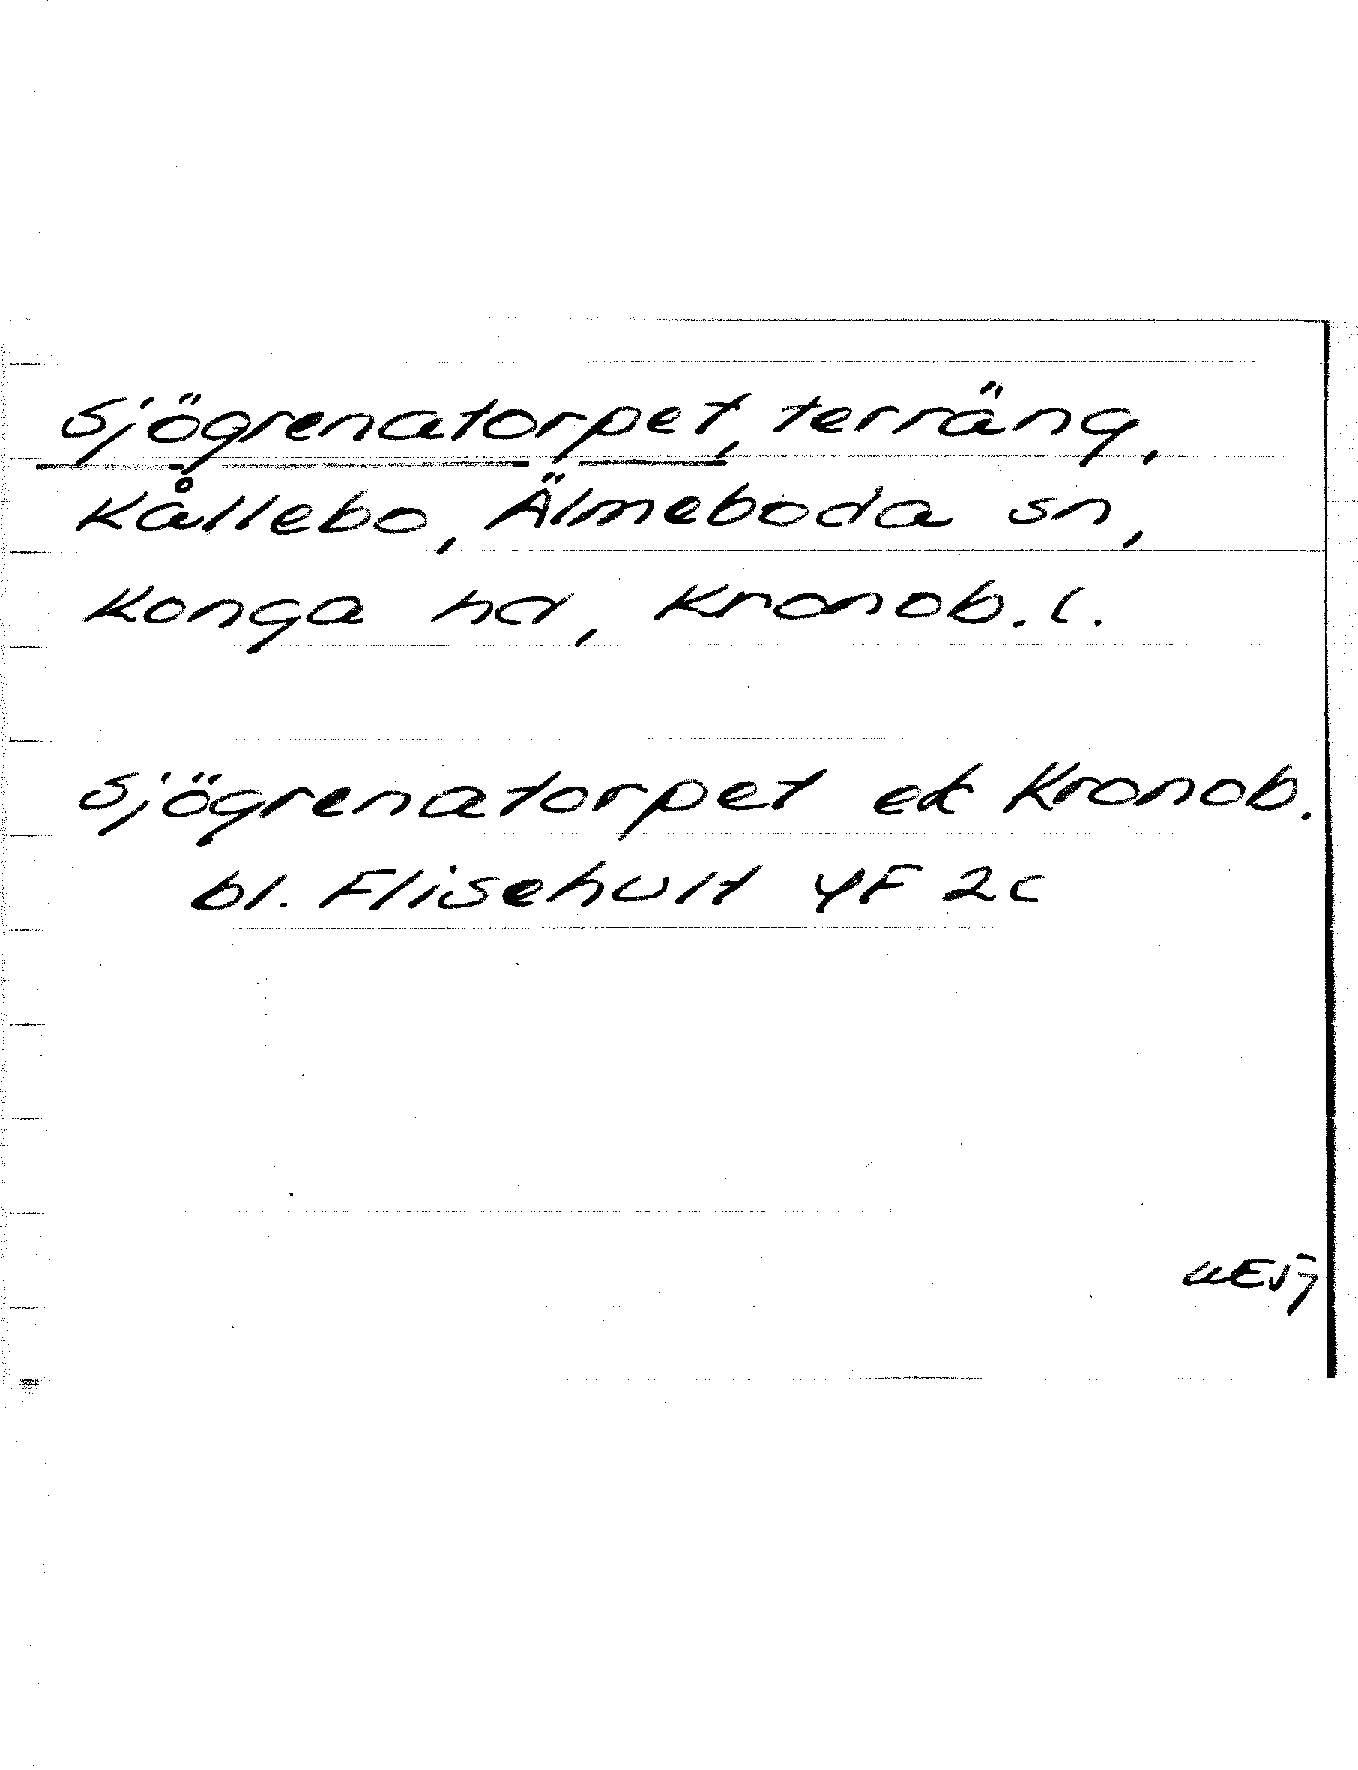 Sjögrenatorpet, terräng,
Kållebo, Älmeboda sn,
Konga hd, Kronob. l.
Sjögrenatorpet ek Kronob.
bl. Flisehult 4F 2c